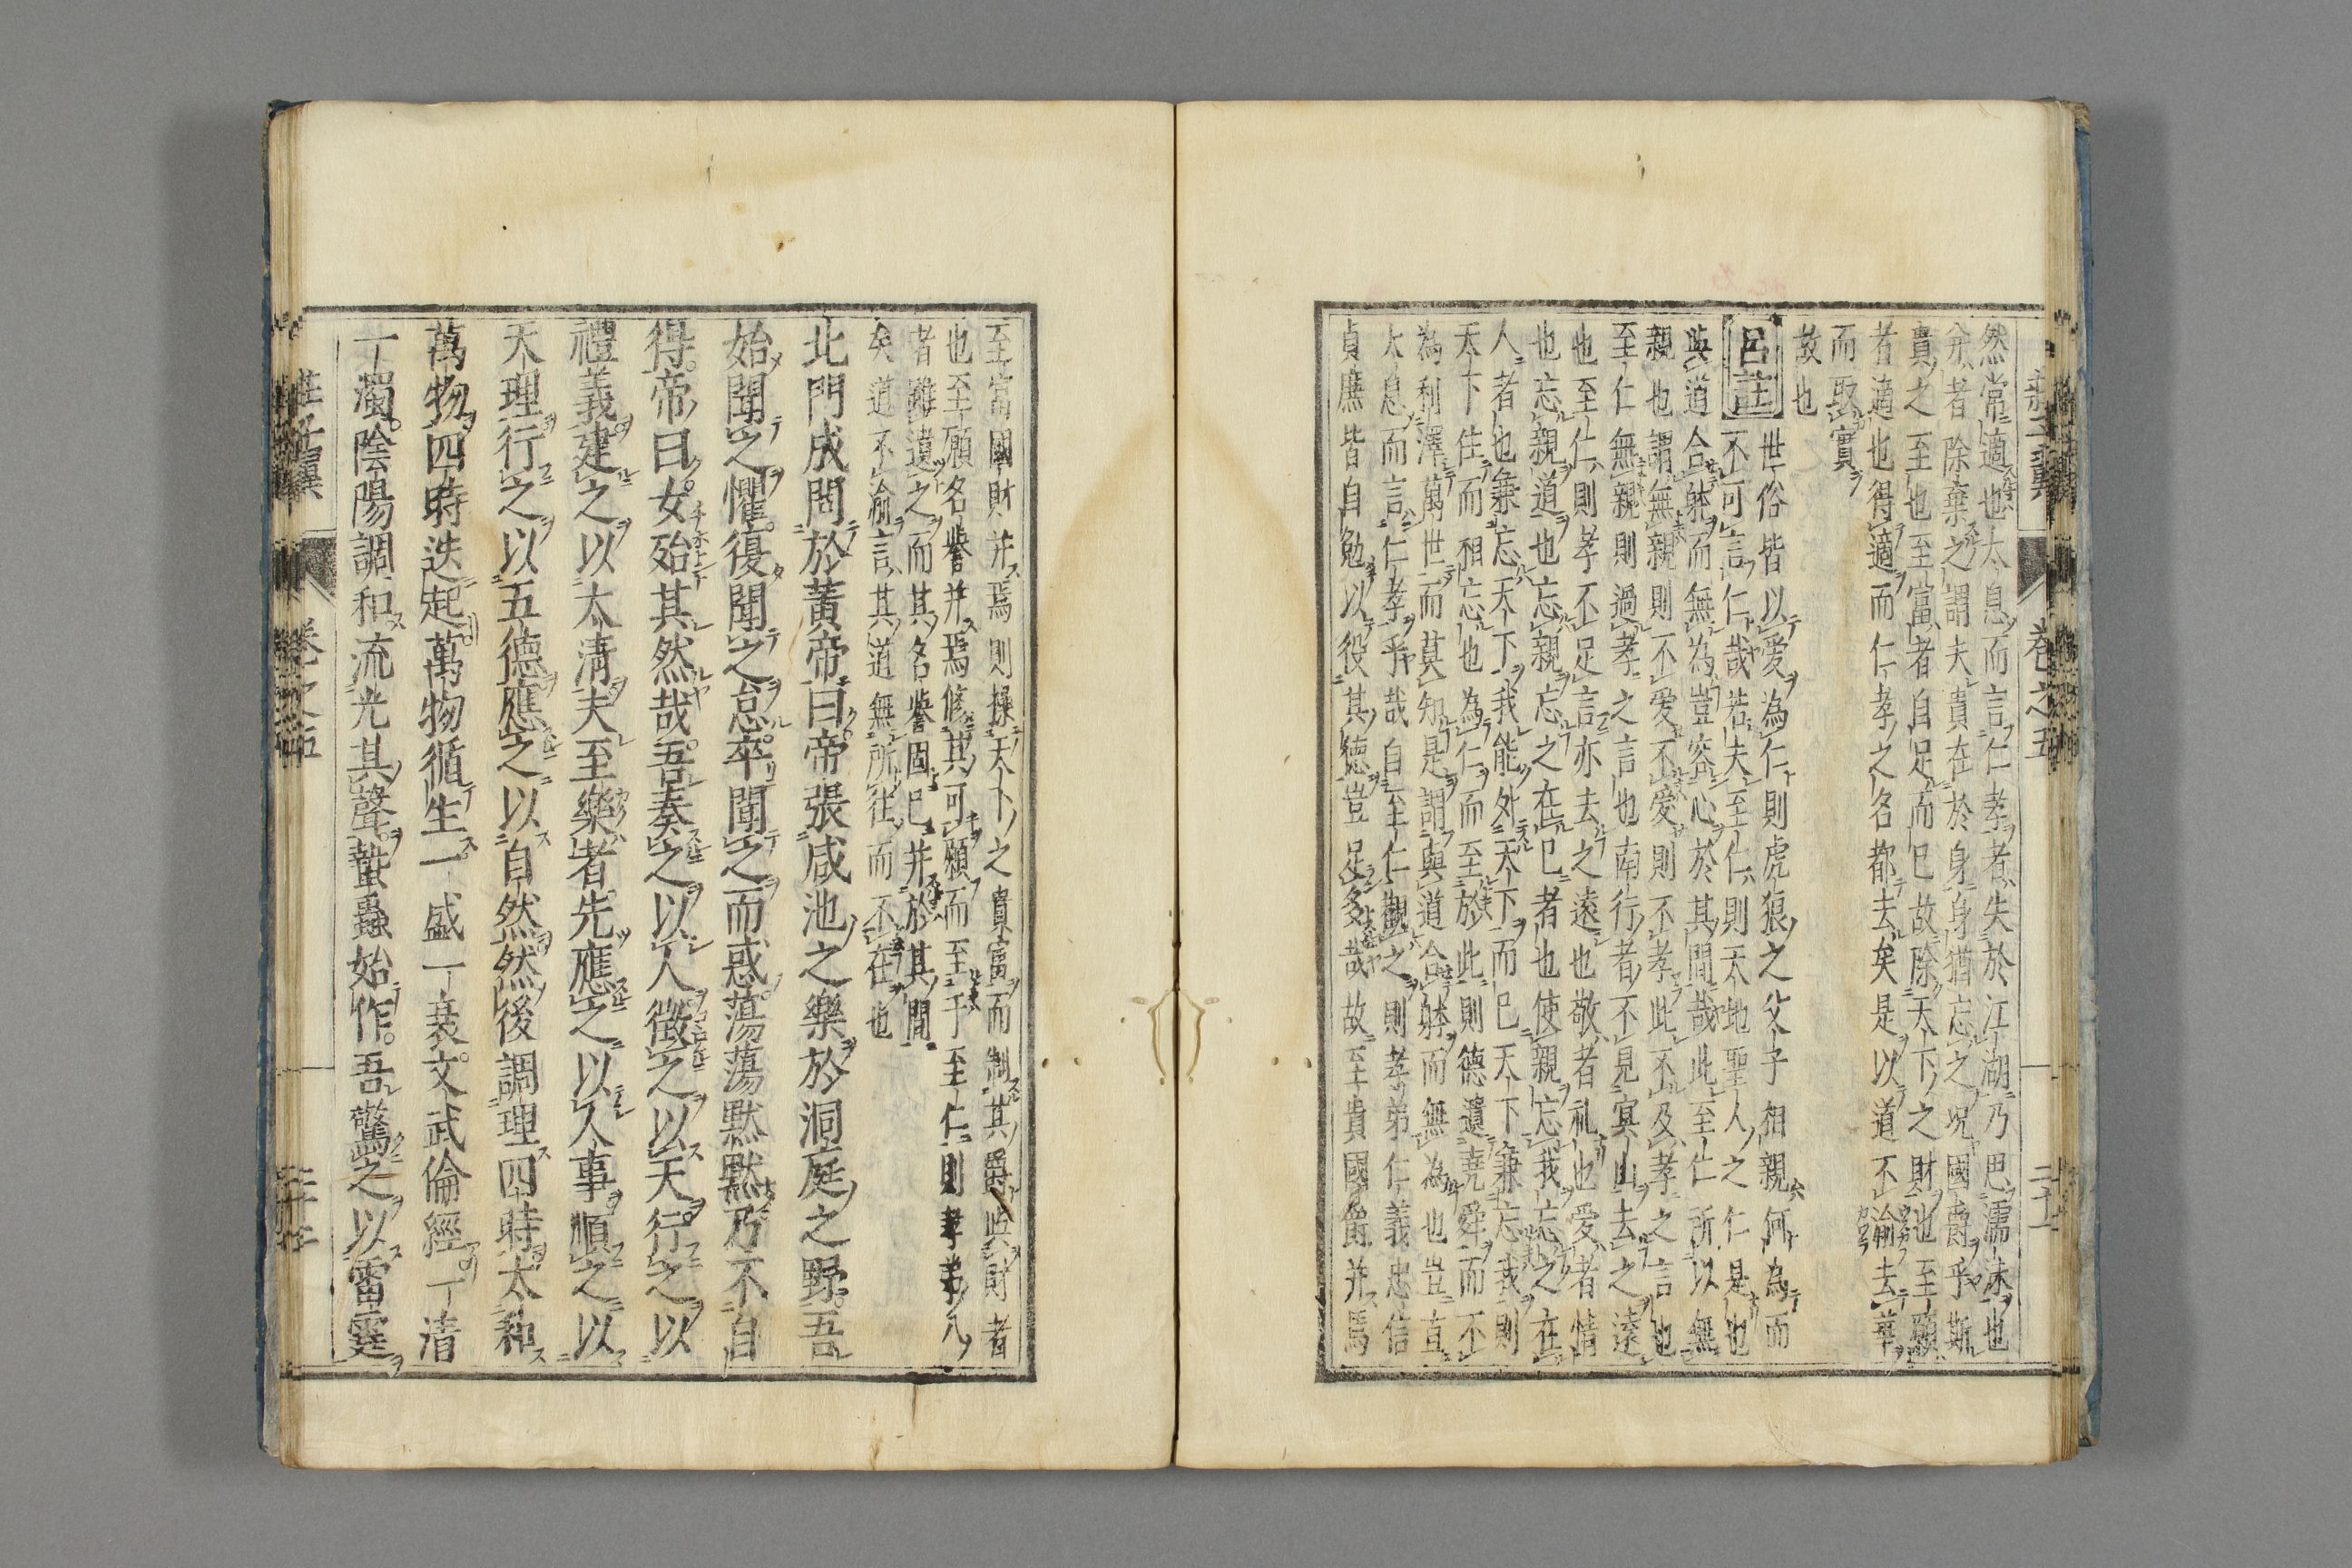 然常適也太息而言仁孝者失於江湖乃思濡沫也
分者除棄之謂夫貴在於身身猶忘之況國爵乎斯
貴之至也至富者自足而已故除天下之財也至願
者適也得適而仁孝之名都去矣是以道不渝去華
而取實
故也
呂註 世俗皆以愛為仁則虎狼之父子相親何為而
不可言仁哉若夫至仁則天地聖人之仁是也
與道合躰而無為豈容心於其間哉此至仁所以無
親也謂無親則不愛不愛則不孝此不及孝之言也
至仁無親則過孝之言也南行者不見冥山去之遠
也至仁則孝不足言亦去之遠也敬者礼也愛者情
也忘親道也忘親忘之在已者也使親忘我忘之在
人者也兼忘天下我能外天下而已天下兼忘我則
天下往而相忘也為仁而至於此則德遺堯舜而不
為利澤萬世而莫知是謂與道合躰而無為也豈直
太息而言仁孝乎哉自至仁觀之則孝弟仁義忠信
貞廉皆自勉以役其德豈足多哉故至貴國爵并焉
至富國財并焉則操天下之貴富而制其爵與財者
也至願名譽并焉修其可願而至于至仁則孝弟八
者雖遺之而其名譽固已并於其間
矣道不渝言其道無所往而不在也
北門成問於黃帝曰帝張咸池之樂於洞庭之野吾
始聞之懼復聞之怠卒聞之而惑蕩蕩默默乃不自
得帝曰女殆其然哉吾奏之以人徵之以天行之以
禮義建之以太清夫至樂者先應之以人事順之以
天理行之以五德應之以自然然後調理四時太和
萬物四時迭起萬物循生一盛一衰文武倫經一清
一濁陰陽調和流光其聲蟄蟲始作吾驚之以雷霆
莊子翼 卷之五 二十一
莊子翼 卷之五